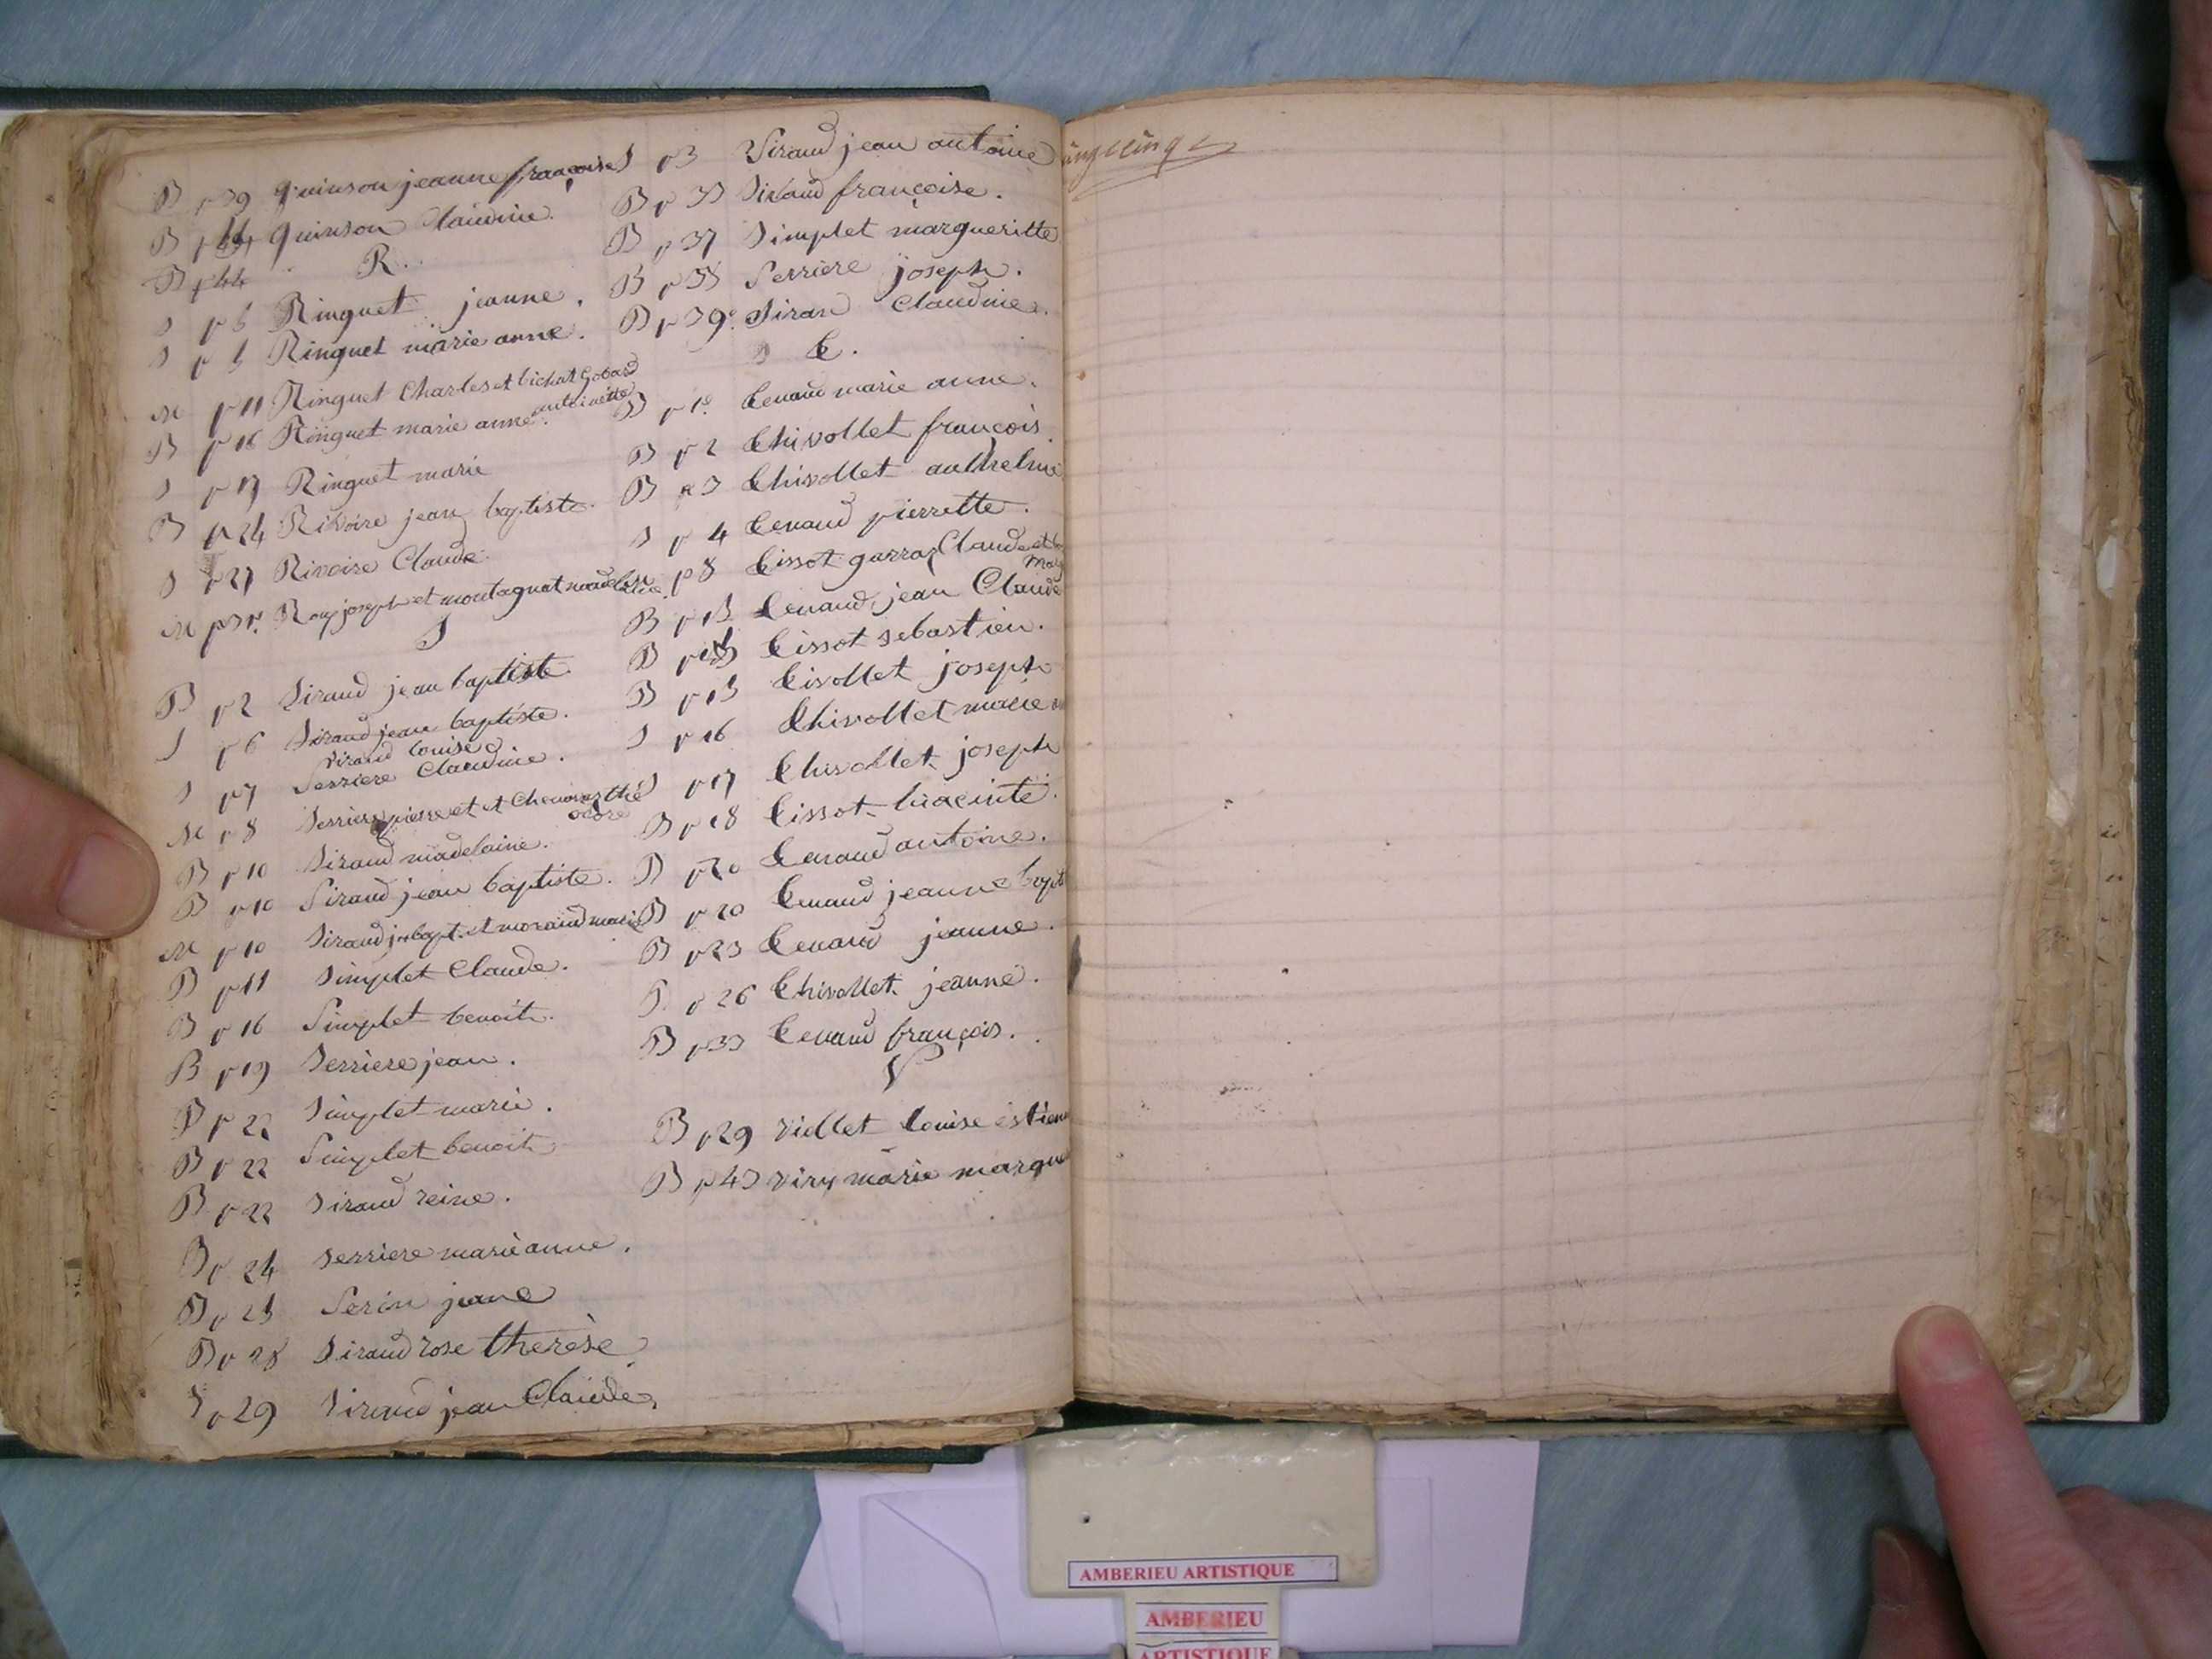 B p 39 quinson jeanne françoise
B p 44 quinson Claudine.
B p 44
R.
S p 5 Ringuet jeanne.
S p 5 Ringuet marie anne.
M p 11 Ringuet Charles et bichat Gobard
antoinette
B p 16 Ringuet marie anne.
S p 17 Ringuet marie
B p 24 Rivoire jean baptiste.
S p 27 Rivoire Claude.
M p Roy joseph et montagnat madelaine.
S
B p 2 Siraud jean baptiste.
S p 6 Siraud jean baptiste.
Siraud louise
S p 7 Serriere Claudine.
M p 8 Serriere pierre et et
B p 10 Siraud madelaine.
B p 10 Siraud jean baptiste.
M p 10 Siraud j bapt. et moraud marie
B p 11 Simplet Claude.
B p 16 Simplet benoit.
B p 19 Serriere jean.
B p 22 Simplet marie.
B p 22 Simplet benoit
B p 22 Siraud reine.
B p 24 serriere marie anne.
B p 25 Serin jeane
B p 28 Siraud rose therèse
S p 29 Siraud jean Claude.
S p 3 Siraud jean antoine
B p 33 Siraud françoise.
B p 37 Simplet margueritte
B p 38 Serriere joseph.
B p 39 Siran Claudine.
t.
B p 1 tenaud marie anne.
B p 2 thivollet françois.
B p 3 thivollet anthelme
S p 4 tenaud pierrette.
M p 8 tissot garraz Claude et
B p 13 tenaud jean Claude
B p tissot sebastien.
B p 15 tivollet joseph
S p 16 thivollet marie
S p 17 thivollet joseph
B p 18 tissot hiacinte.
B p 20 tenaud antoine.
B p 20 tenaud jeanne bapt
B p 23 tenaud jeanne.
S. p 26 thivollet jeanne.
B p 33 tenaud françois.
V
B p 29 viollet louise estien
B p 43 viry marie margue
AMBERIEU ARTISTIQUE
AMBERIEU
ARTISTIQUE